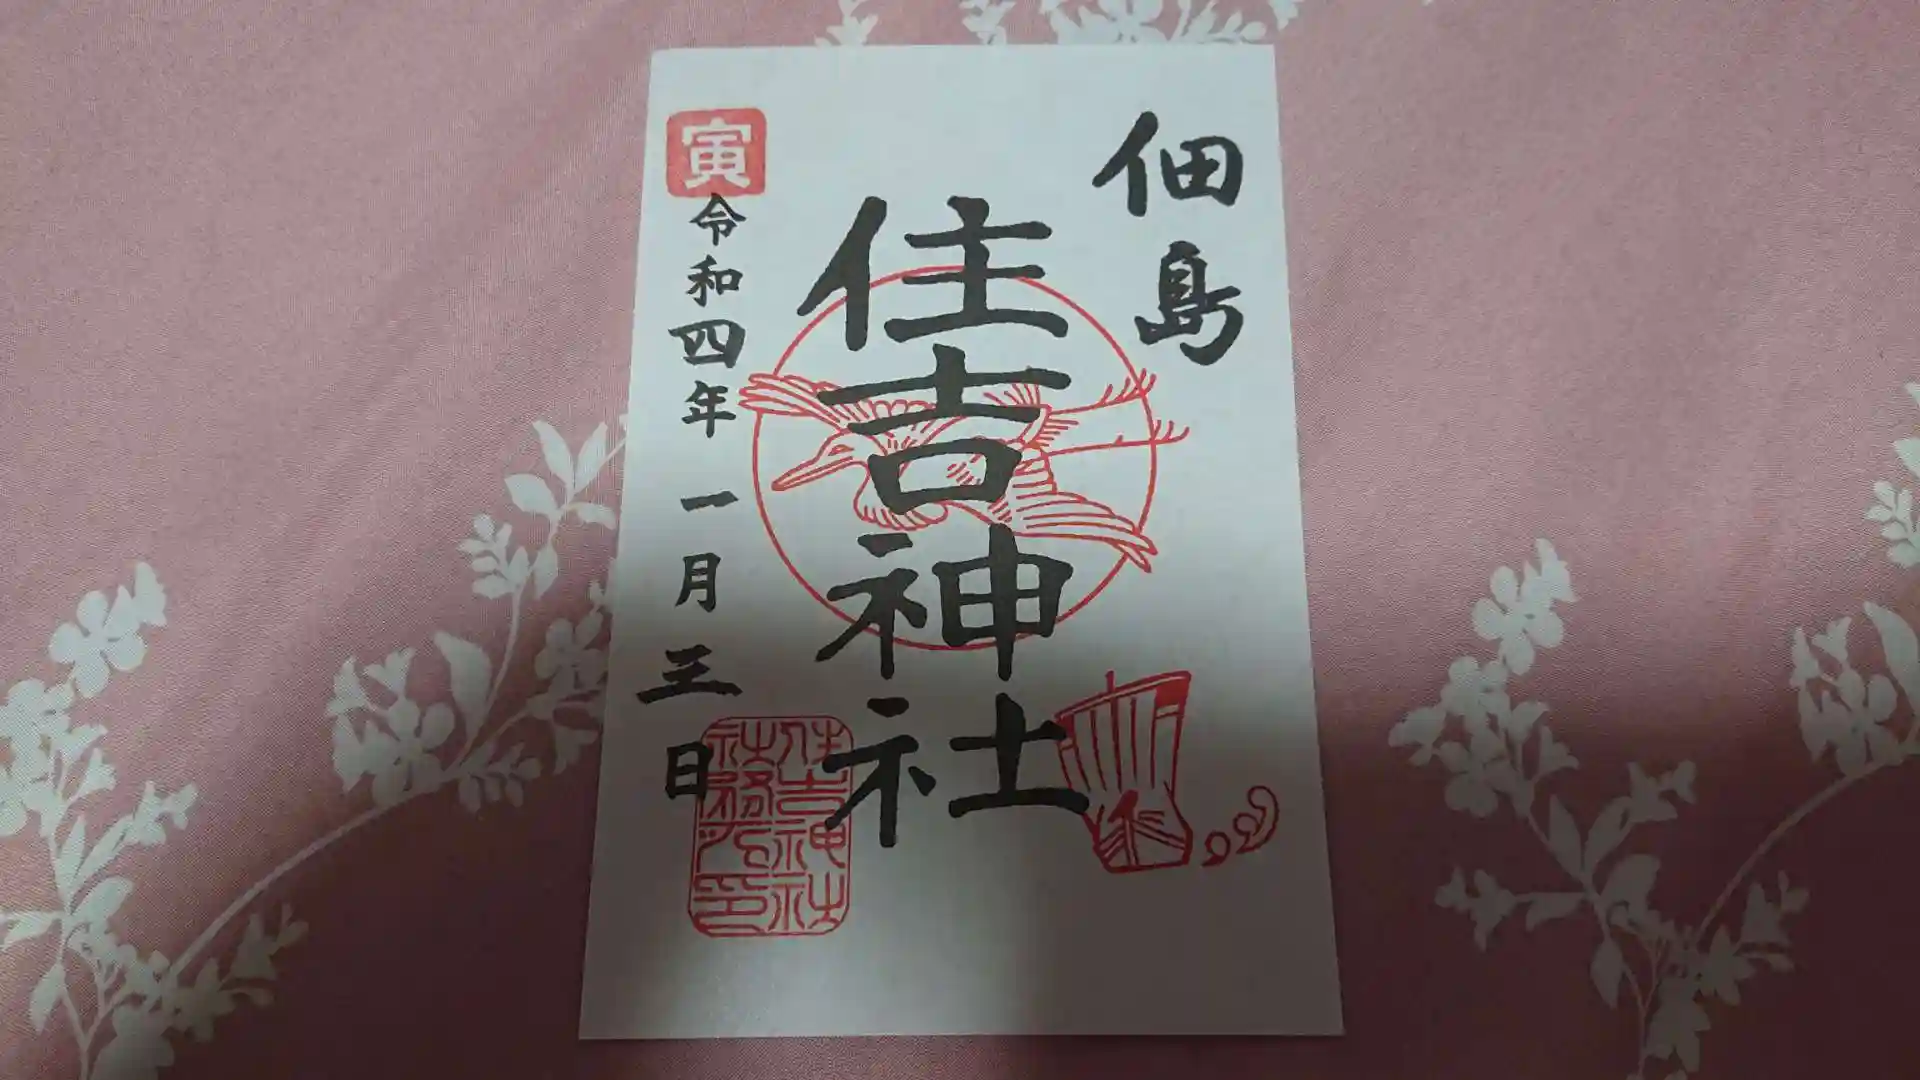 佃島
住吉神社
寅
令和四年一月三日
住吉神社
社務所印